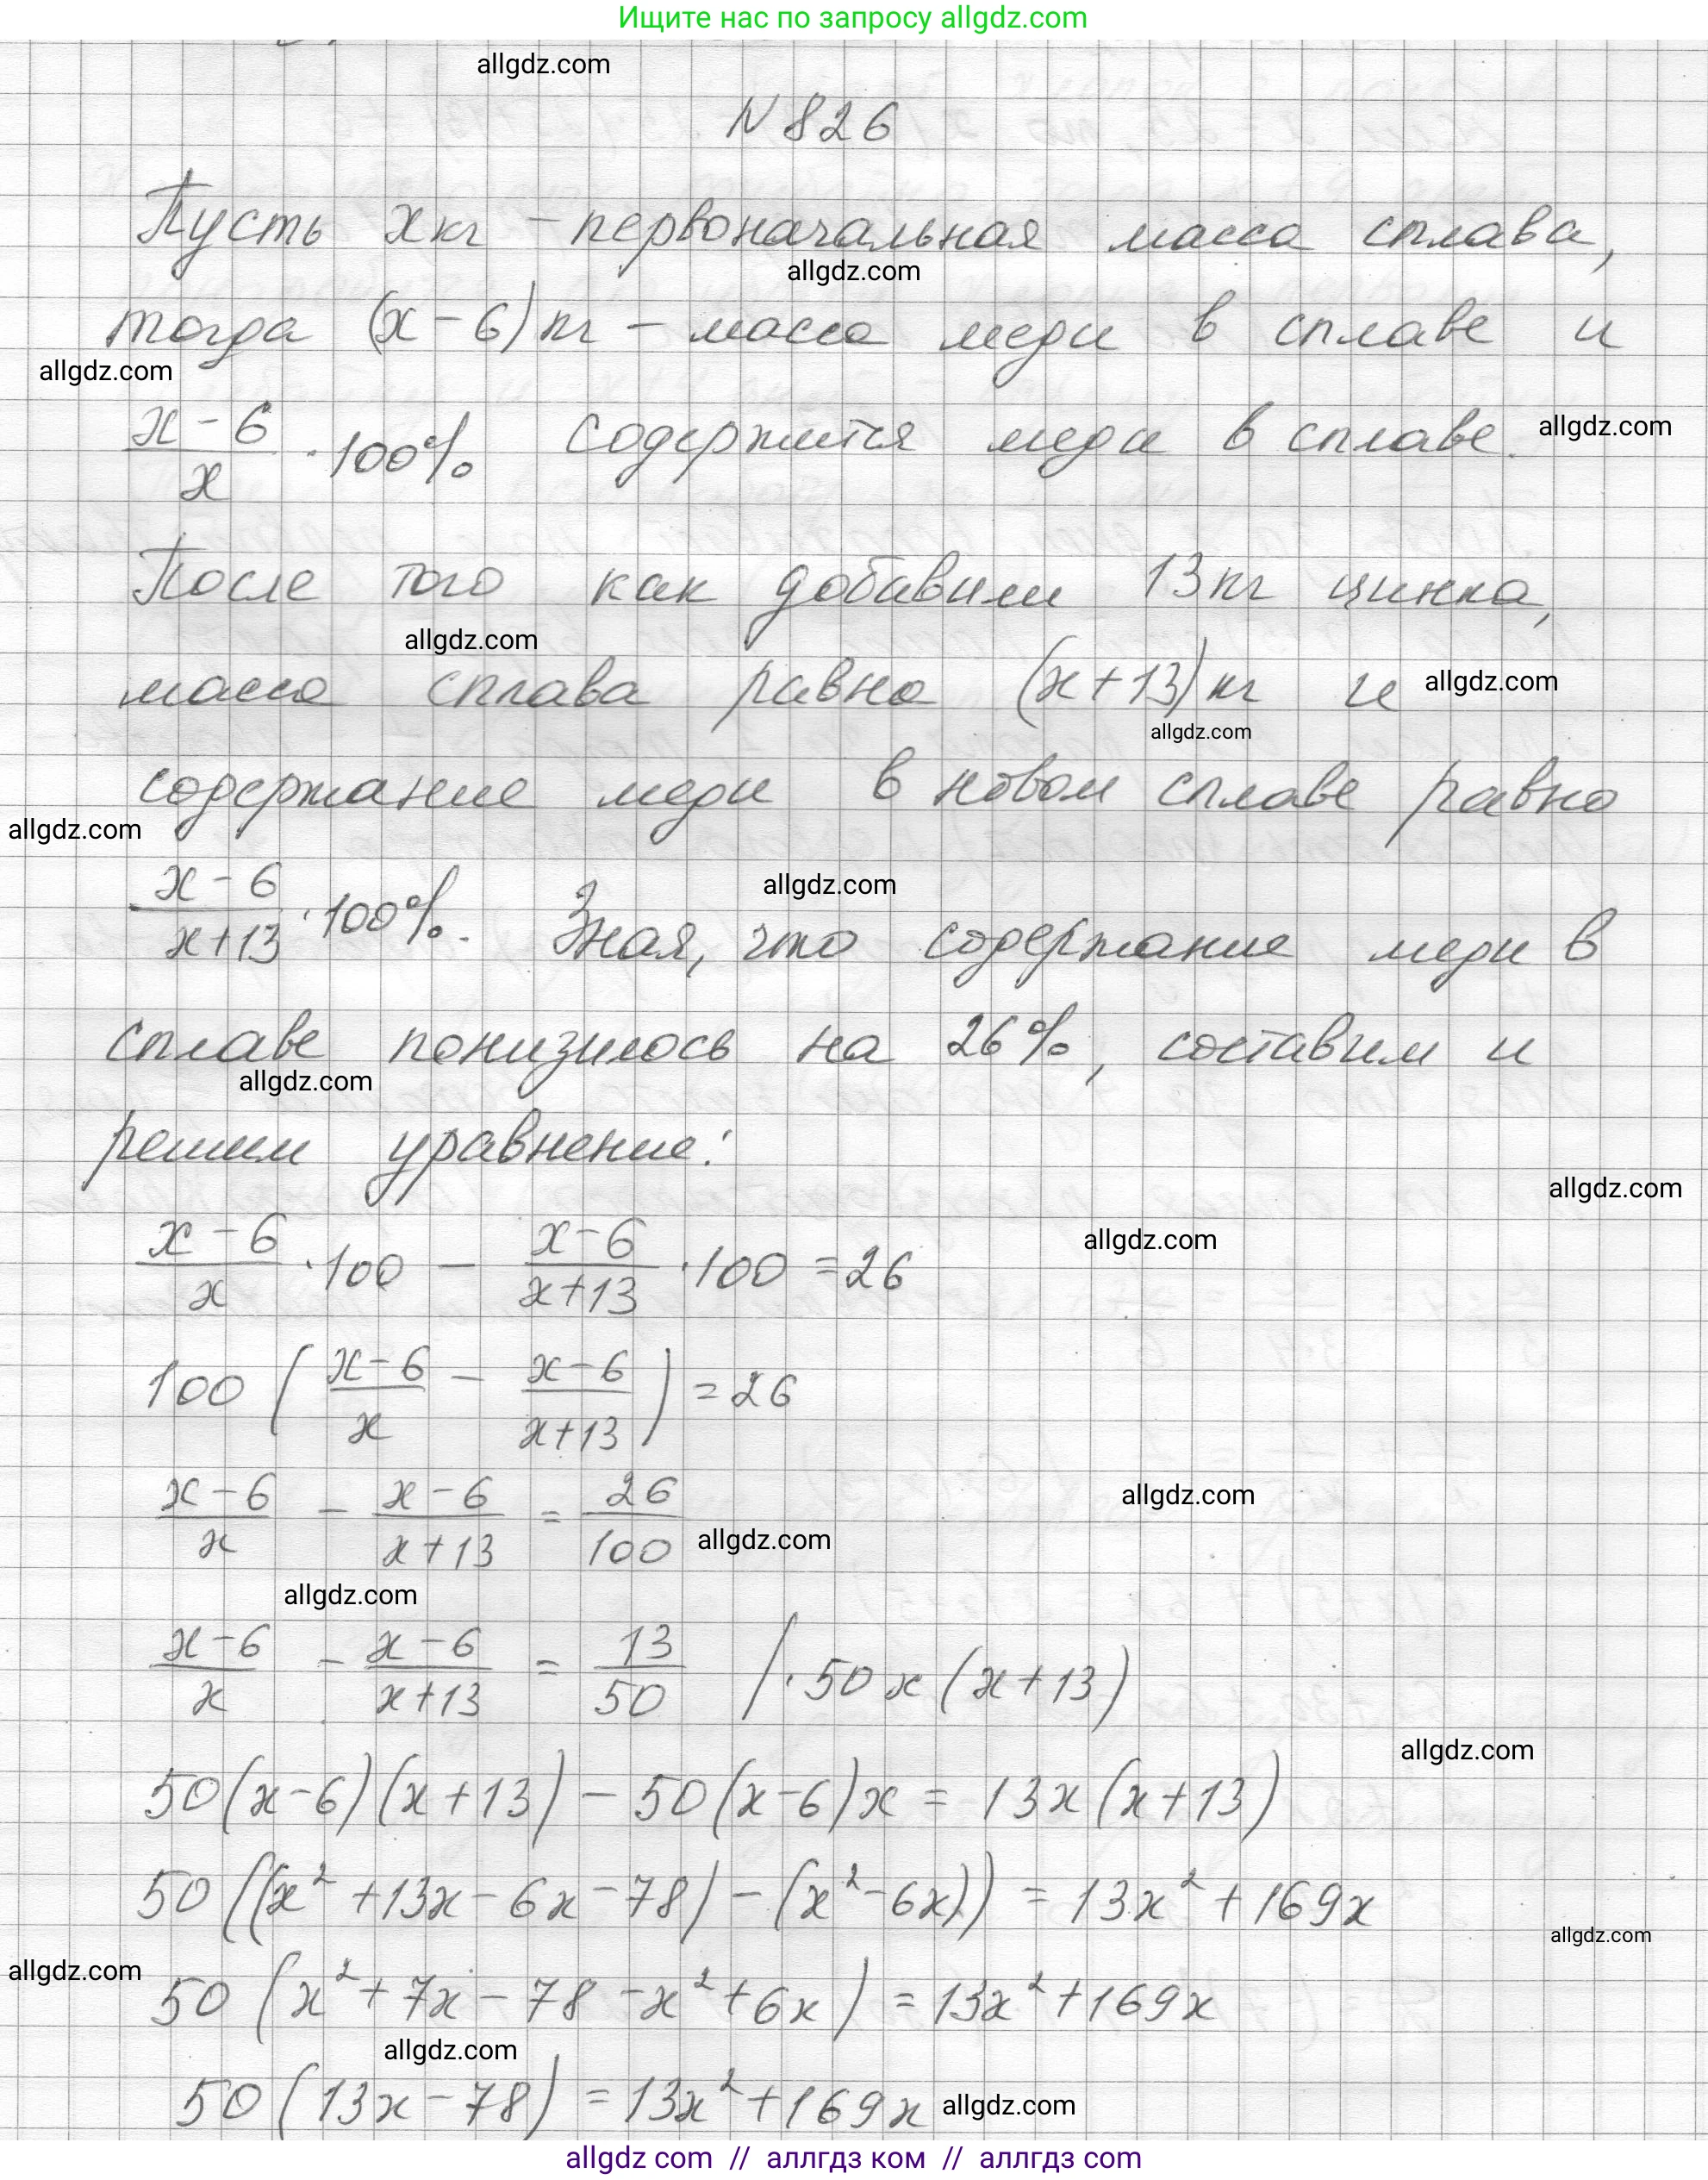 Ищите нас по запросу allgdz.com
allgdz.com
N 826
Пусть x кг – первоначальная масса сплава,
allgdz.com
тогда (x - 6) кг – масса меди в сплаве и
allgdz.com
\frac{x-6}{x} · 100% содержится меди в сплаве. allgdz.com
После того как добавили 13 кг цинка,
allgdz.com
масса сплава равна (x+13) кг и allgdz.com
allgdz.com
содержание меди в новом сплаве равно
allgdz.com
\frac{x-6}{x+13} · 100%. Зная, что содержание меди в
allgdz.com
сплаве понизилось на 26%, составим и
allgdz.com
решим уравнение:
allgdz.com
\frac{x-6}{x} · 100 - \frac{x-6}{x+13} · 100 = 26
allgdz.com
100 ( \frac{x-6}{x} - \frac{x-6}{x+13} ) = 26
\frac{x-6}{x} - \frac{x-6}{x+13} = \frac{26}{100}
allgdz.com
allgdz.com
allgdz.com
\frac{x-6}{x} - \frac{x-6}{x+13} = \frac{13}{50} / · 50x (x+13)
allgdz.com
50(x-6)(x+13) - 50(x-6)x = 13x(x+13)
50((x² + 13x - 6x - 78) - (x² - 6x)) = 13x² + 169x
allgdz.com
allgdz.com
50 (x² + 7x - 78 - x² + 6x) = 13x² + 169x
allgdz.com
50 (13x - 78) = 13x² + 169x allgdz.com
allgdz com // аллгдз ком // аллгдз com